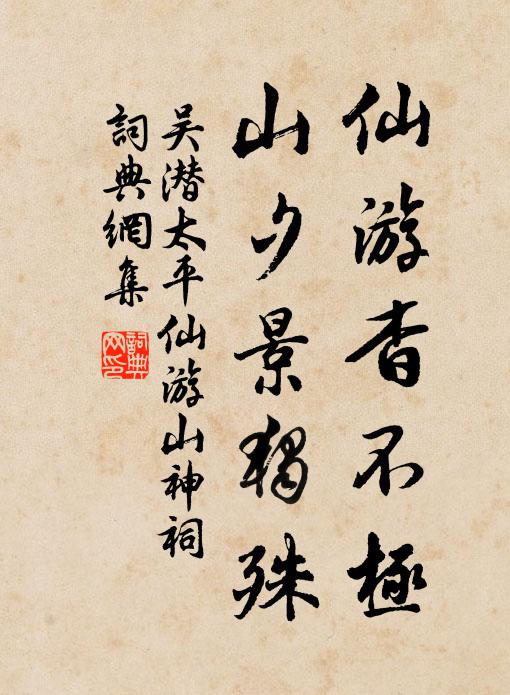 仙游杳不極
山夕景獨殊
吴潜太平仙游山神祠
詞典網集
詞典網印